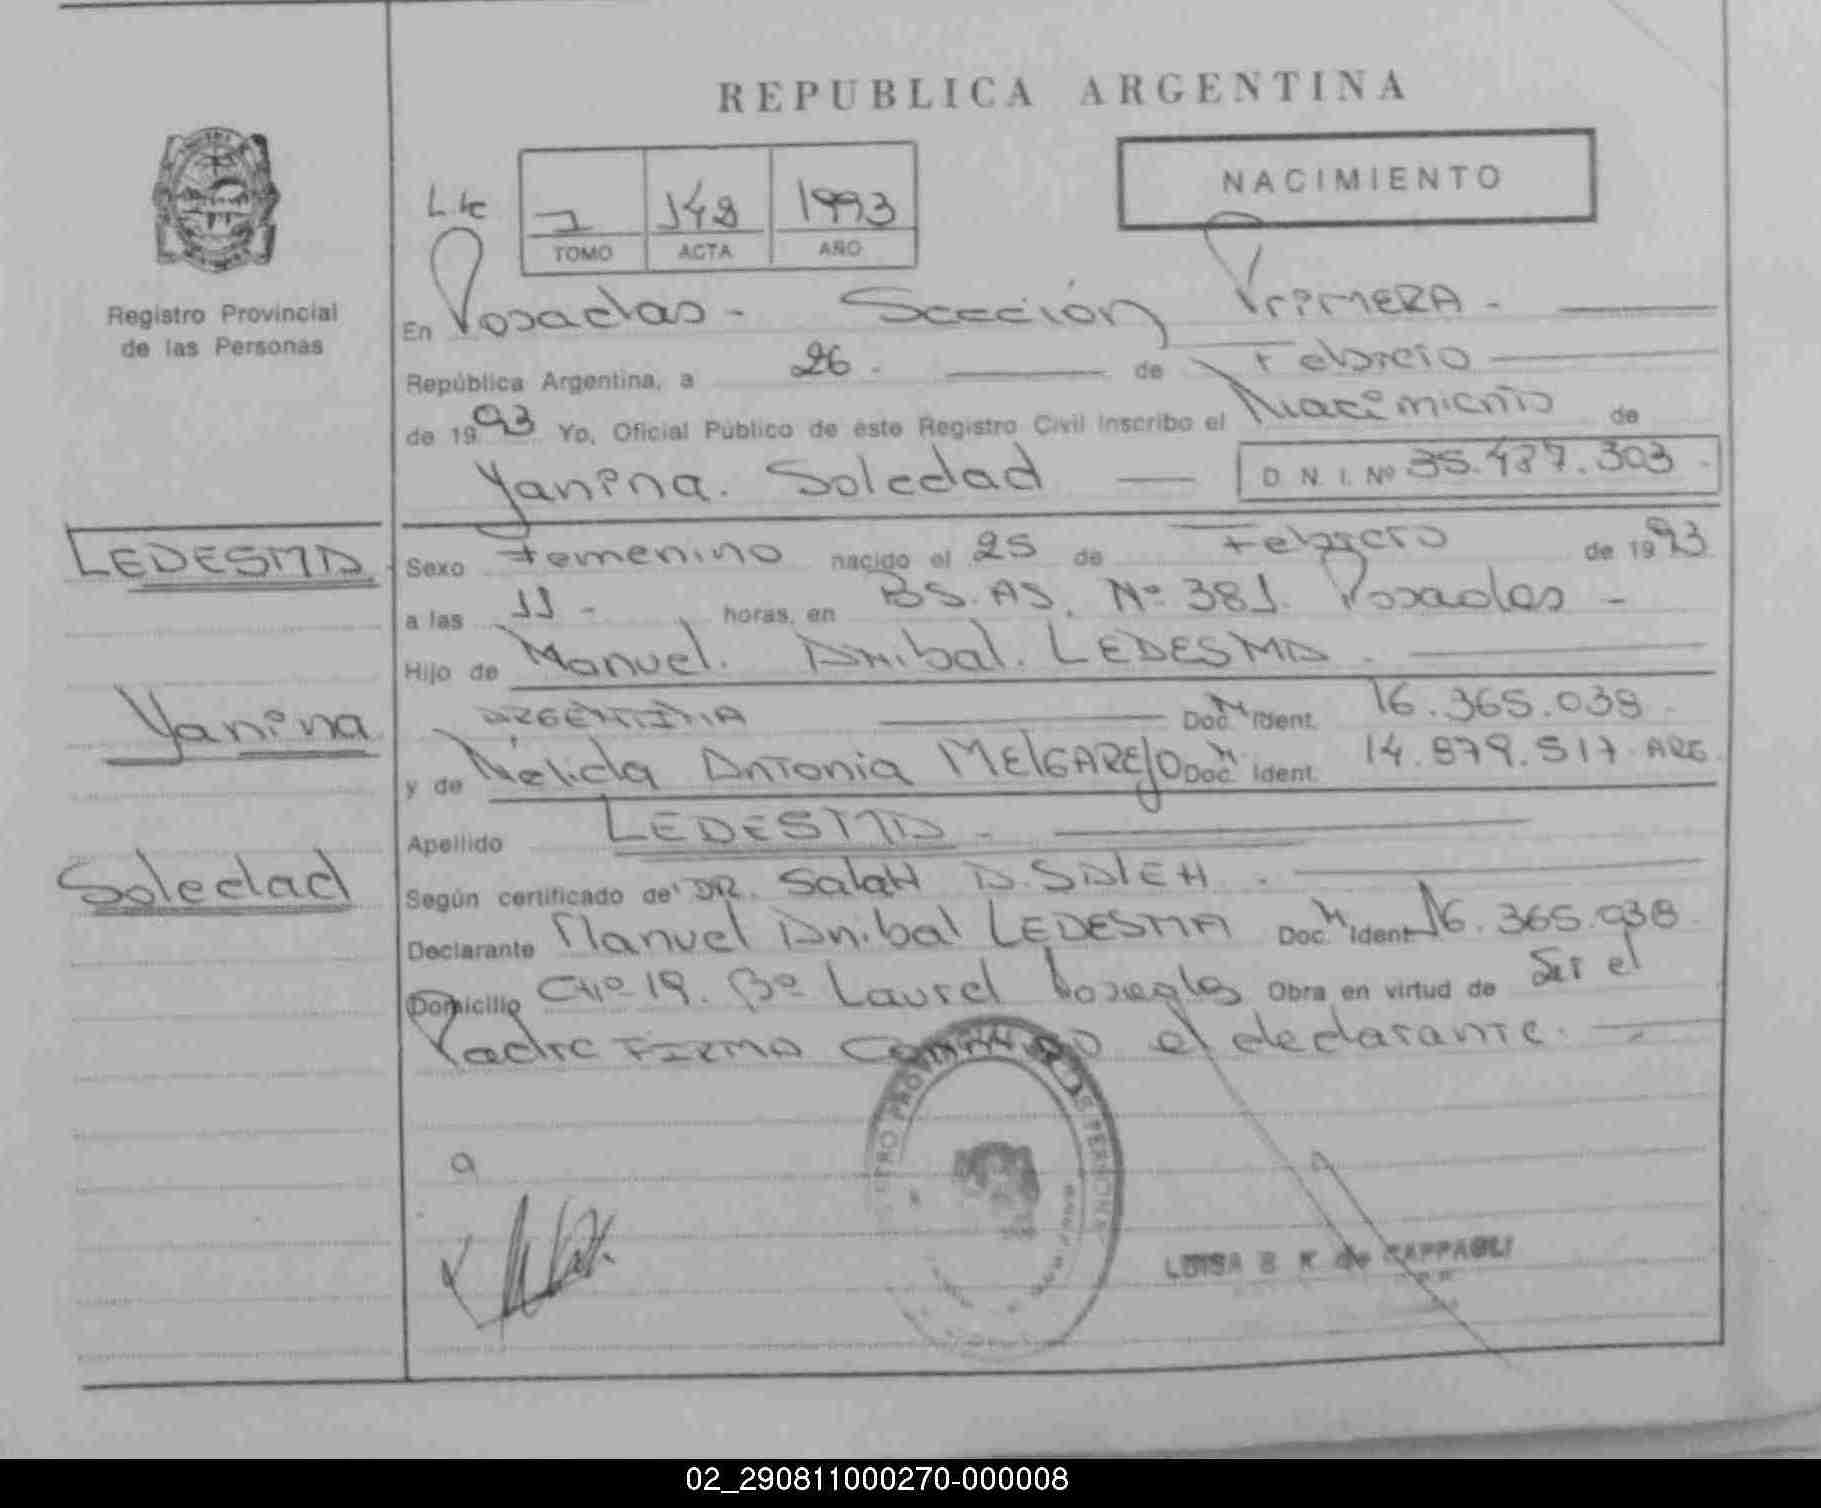 REPUBLICA ARGENTINA
NACIMIENTO
1 148 1993
TOMO ACTA AÑO
Registro Provincial
de las Personas
En Posadas - Sección Primera -
República Argentina, a 26. de Febrero
de 1993 Yo, Oficial Público de este Registro Civil inscribo el Nacimiento de
Yanina. Soledad D N. I. Nº 35.487.303
LEDESMA
Yanina
Soledad
Sexo Femenino nacido el 25 de Febrero de 1993
a las 11 - horas, en BS.AS. Nº 381. Posadas -
Hijo de Manuel. Anibal. LEDESMA
ARGENTINA Doc. Ident. 16.365.038
y de Nélida Antonia MElGAREJO Doc. Ident. 14.879.517 ARG
Apellido LEDESMA -
Según certificado de DR. Salah D. SALEH
Declarante Manuel Anibal LEDESMA Doc. Ident. 16.365.038
Domicilio CHº 19. Bº Laurel Posadas Obra en virtud de Ser el
Padre FIRMA el declarante.
LUISA B K de ZAPPAGLI
02_290811000270-000008